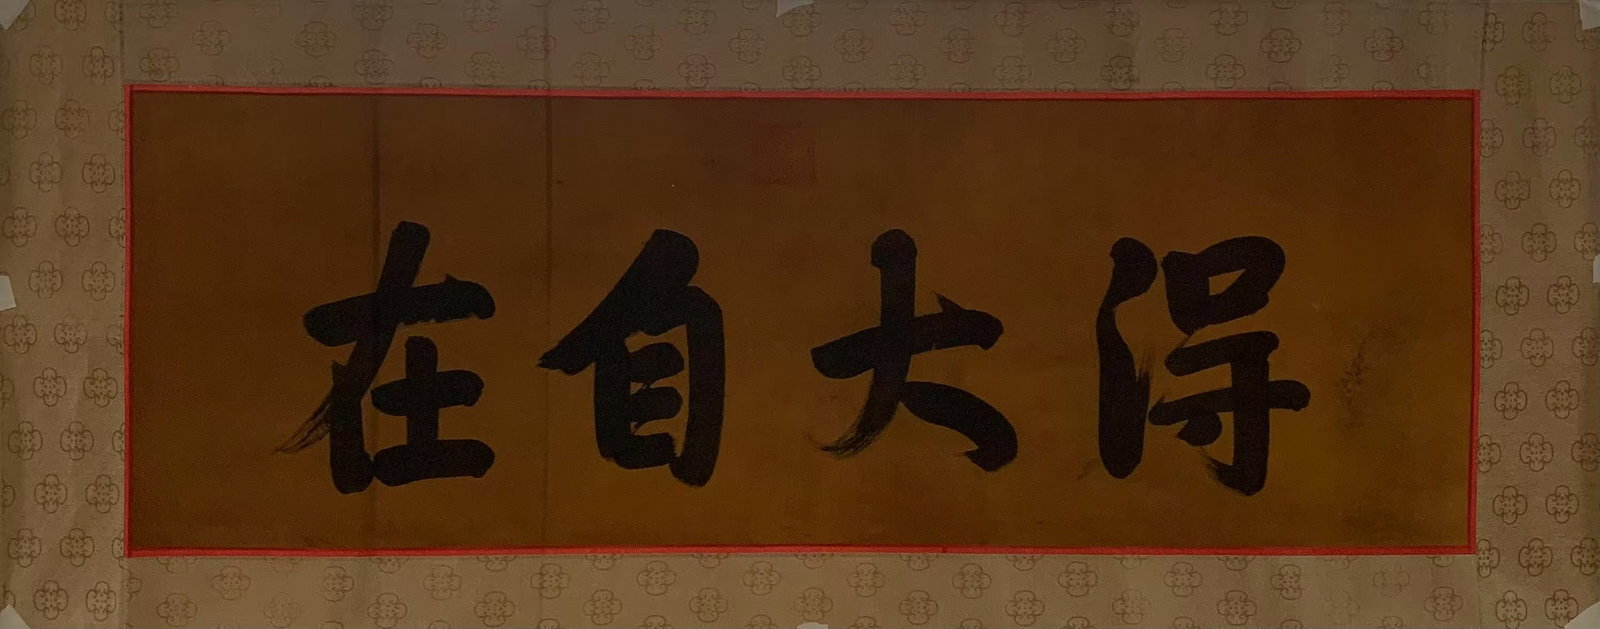 得大自在